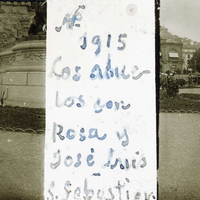 Nº
1915
Los abue
los con
Rosa y
José Luis
S. Sebastian.